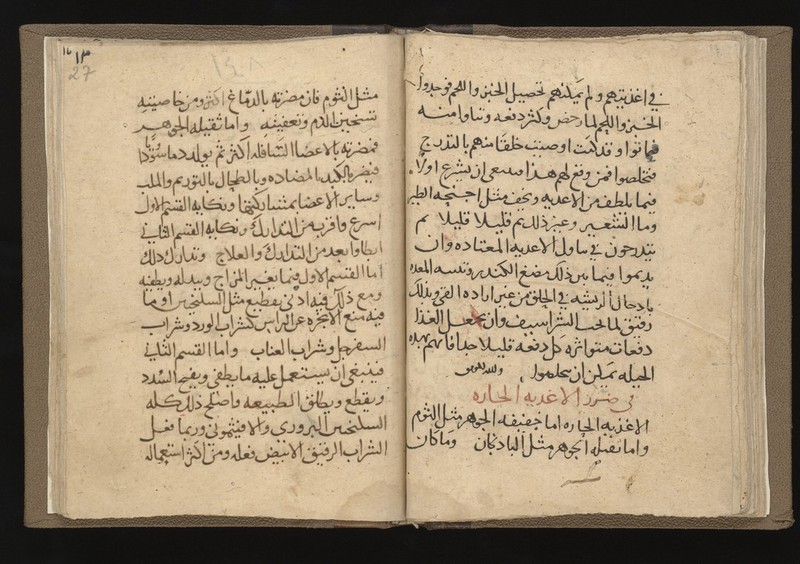 في اغذيتهم ولم يمكنهم تحصيل الخبز واللحم فوجدوا
الخبز واللحم لما رخص وكثر دفعه وتناوا منه
فماتوا وقد كنت اوصيت خلقا منهم بالتدريج
فتخلصوا فمن وقع لهم هذا ان يشرع اولا
فيما يلطف من الاغذيه ويخف مثل اجنحه الطير
وما الشعير وغير ذلك ثم قليلا قليلا ثم
يتدرجون في تناول الاغذيه المعتاده وان
يديموا فيما بين ذلك مضغ الكندر وتنقيه المعده
بادخال الريشه في الحلق من غير اراده القي وبدلك
رفيق لما تحت الشراسيف وان يجعل الغذا
دفعات متواتره كل دفعه قليلا جدا فانهم بهذه
الحيله يمكن ان يتخلصوا والله اعلم
في ضرر الاغذيه الحاره
الاغذيه الحاره اما خفيفه الجوهر مثل الثوم
واما ثقيله الجوهر مثل الباذنجان وما كان
١٣
27
١٤٨
مثل الثوم فان مضرته بالدماغ اكثر ومن خاصيته
تسخين الدم وتعفينه واما ثقيله الجوهر
فمضرته بالاعضا السافله اكثر ثم يولد دما سوداويا
فيضر بالكبد المضاده وبالطحال بالتوريم والقلب
وساير الاعضا بمشاركتها ونكايه القسم الاول
اسرع واقرب من التدارك ونكايه القسم الثاني
ابطا وابعد من التدارك والعلاج وتدارك ذلك
اما القسم الاول فبما يغير المزاج ويبدله ويطفيه
ومع ذلك فيه ادنى تقطيع مثل السكنجبين او ما
فيه منع الابخره عن الراس كشراب الورد وشراب
السفرجل وشراب العناب واما القسم الثاني
فينبغي ان يستعمل عليه ما يطفي ويفتح السدد
ويقطع ويطلق الطبيعه واصلح ذلك كله
السكنجبين البزوري والافتيموني وربما فعل
الشراب الرقيق الابيض فعله ومن اكثر استعماله